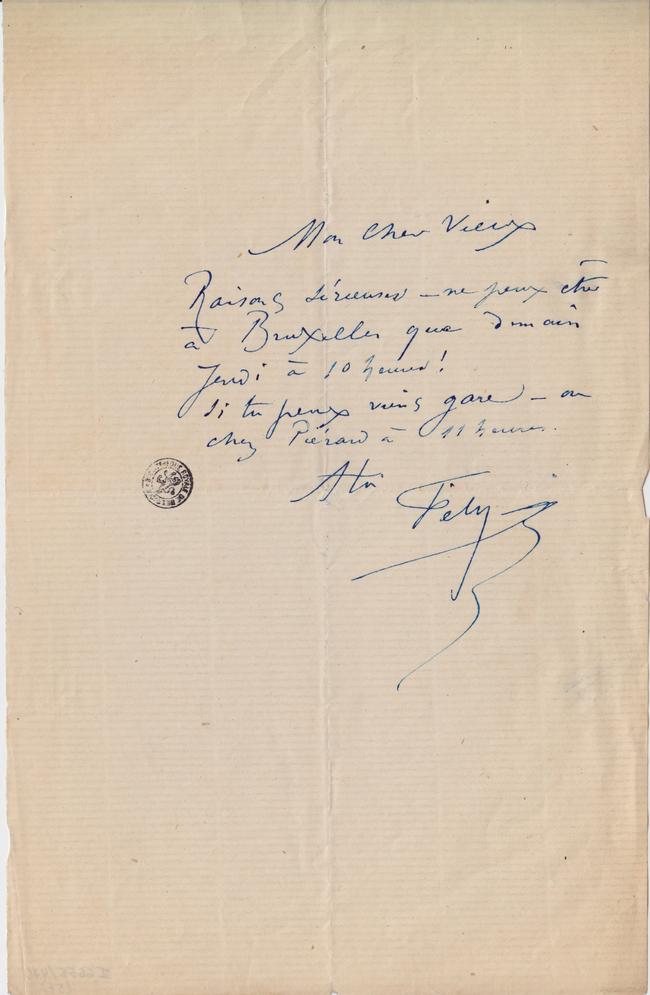 Mon cher Vieux
Raisons sérieuses – ne peux être
à Bruxelles que demain
Jeudi à 10 heures!
Si tu peux viens gare – ou
chez Piérard à 11 heures.
A toi
Fély